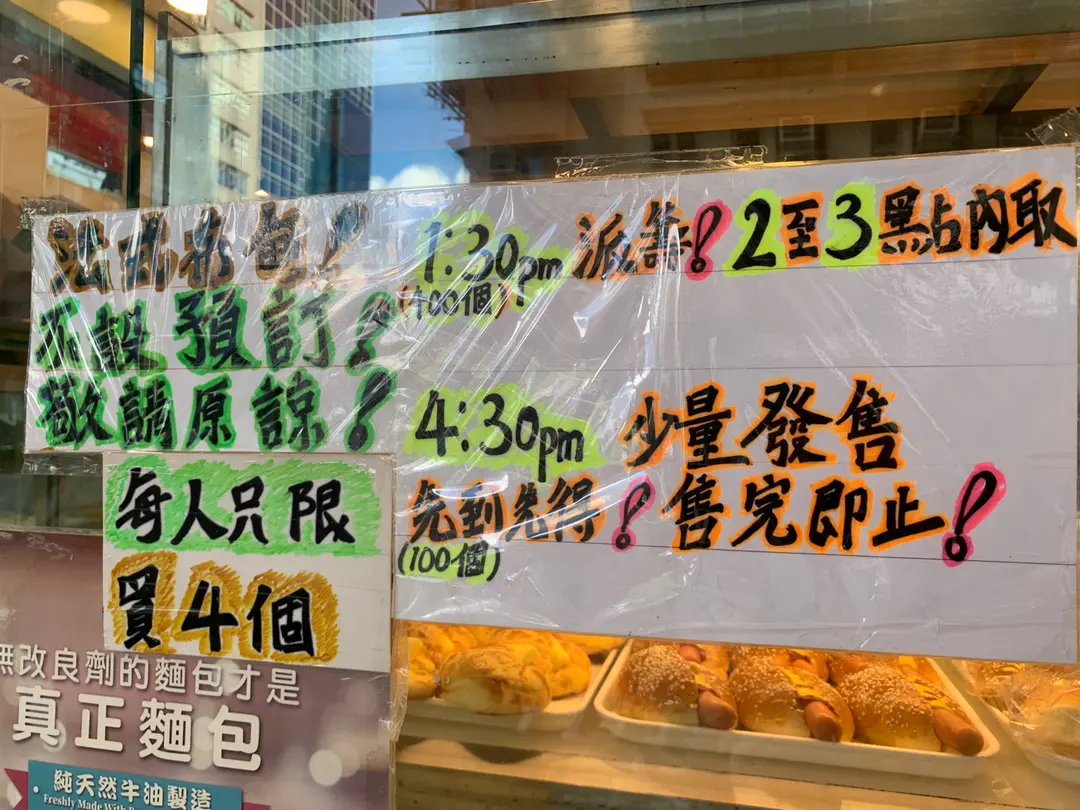 1:30pm 派籌! 2至3點內取
(100個)
不設預訂!
敬請原諒!
4:30pm 少量發售
先到先得! 售完即止!
(100個)
每人只限
買4個
無改良劑的麵包才是
真正麵包
純天然牛油製造
Freshly Made With